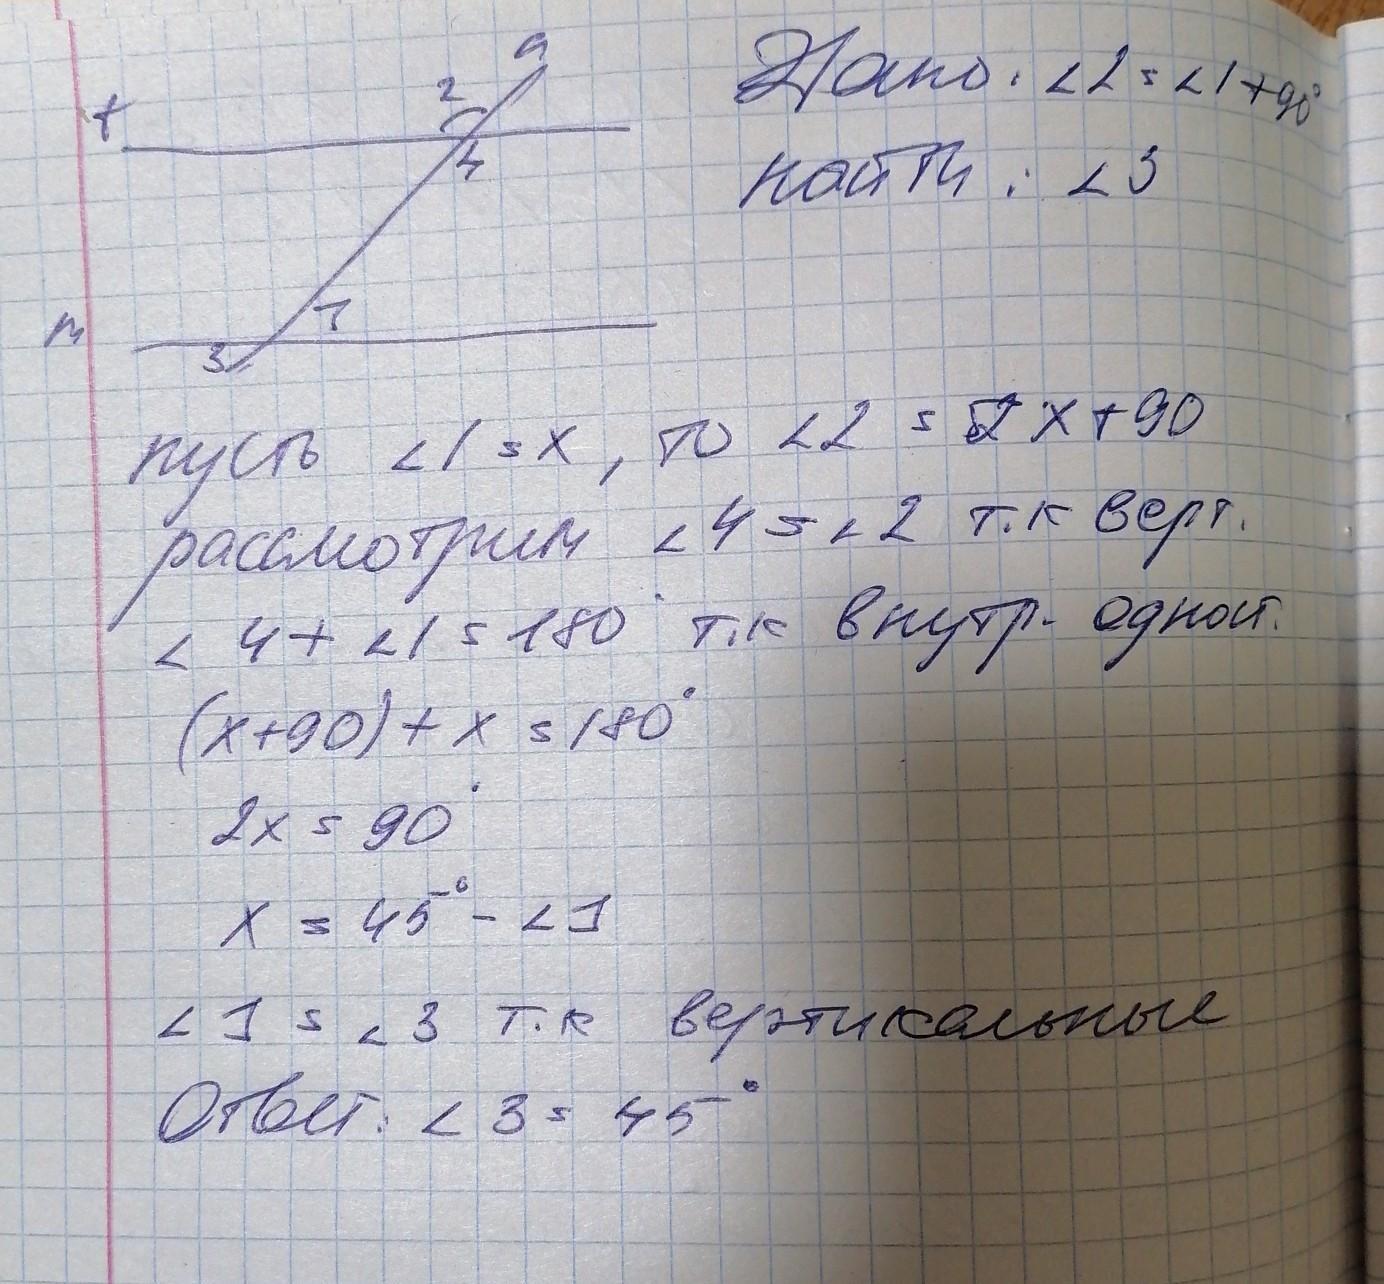 a
2
t
4
Дано: ∠2 = ∠1 + 90°
найти: ∠3
1
m
3
пусть ∠1 = x, то ∠2 = x + 90
рассмотрим ∠4 = ∠2 т.к верт.
∠4 + ∠1 = 180° т.к внутр. одност.
(x+90) + x = 180°
2x = 90°
x = 45° - ∠1
∠1 = ∠3 т.к вертикальные
Ответ: ∠3 = 45°